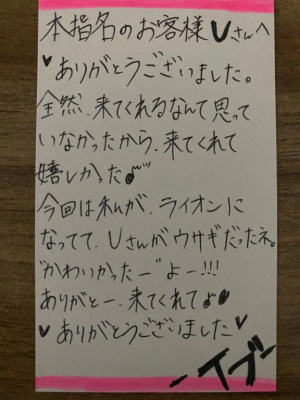 本指名のお客様Uさんへ
♥ありがとうございました。
全然、来てくれるなんて思って
いなかったから、来てくれて
嬉しかった♪
今回は私が、ライオンに
なってて、Uさんがウサギだったネ。
"かわいかったー"よー!!!
ありがとー、来てくれてよ♪
♥ありがとうございました♥
－イブ－